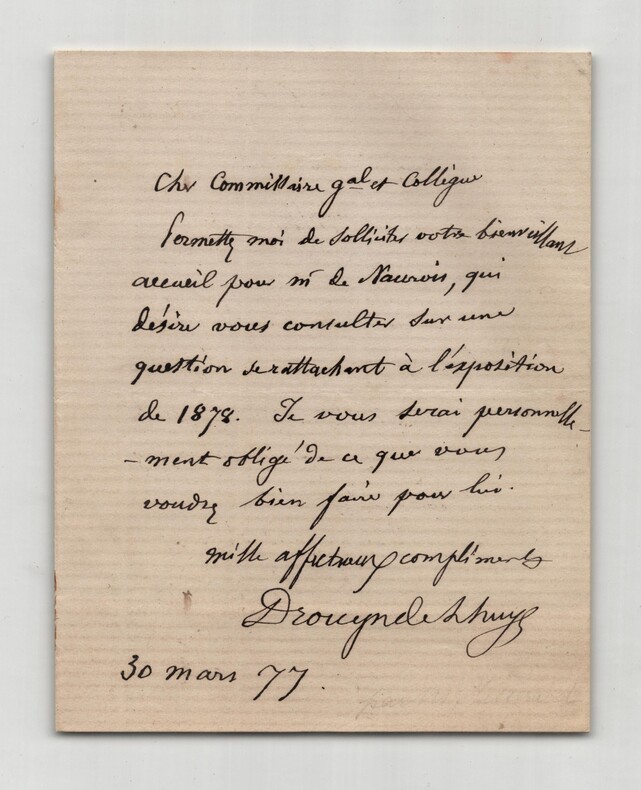 Cher Commissaire gal et Collègue
Permettez moi de solliciter votre bienveillant
accueil pour mr de Naurois, qui
désire vous consulter sur une
question se rattachant à l'exposition
de 1878. Je vous serai personnelle-
-ment obligé de ce que vous
voudrez bien faire pour lui.
mille affectueux compliments
Drouyn de Lhuys
30 mars 77.